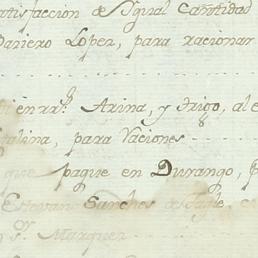 atisfaccion de Ygual Cantidad
Paniero Lopez, para racionar
en rrs. Arina, y trigo, al e
galina, para Raciones
que pague en Durango, p
Estevan Sanches de Tagle, e
y Sr. Marquez